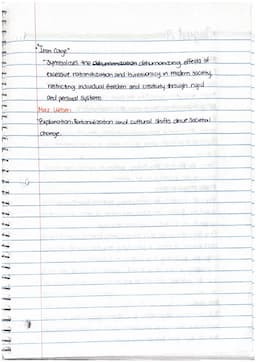 "Iron Cage"
"Symbolizes the dehumanization dehumanizing effects of
excessive rationalization and bureaucracy in modern society,
restricting individual freedom and creativity through rigid
and personal systems.
Max Weber:
*Explanation: Rationalization and cultural shifts drive societal
change.